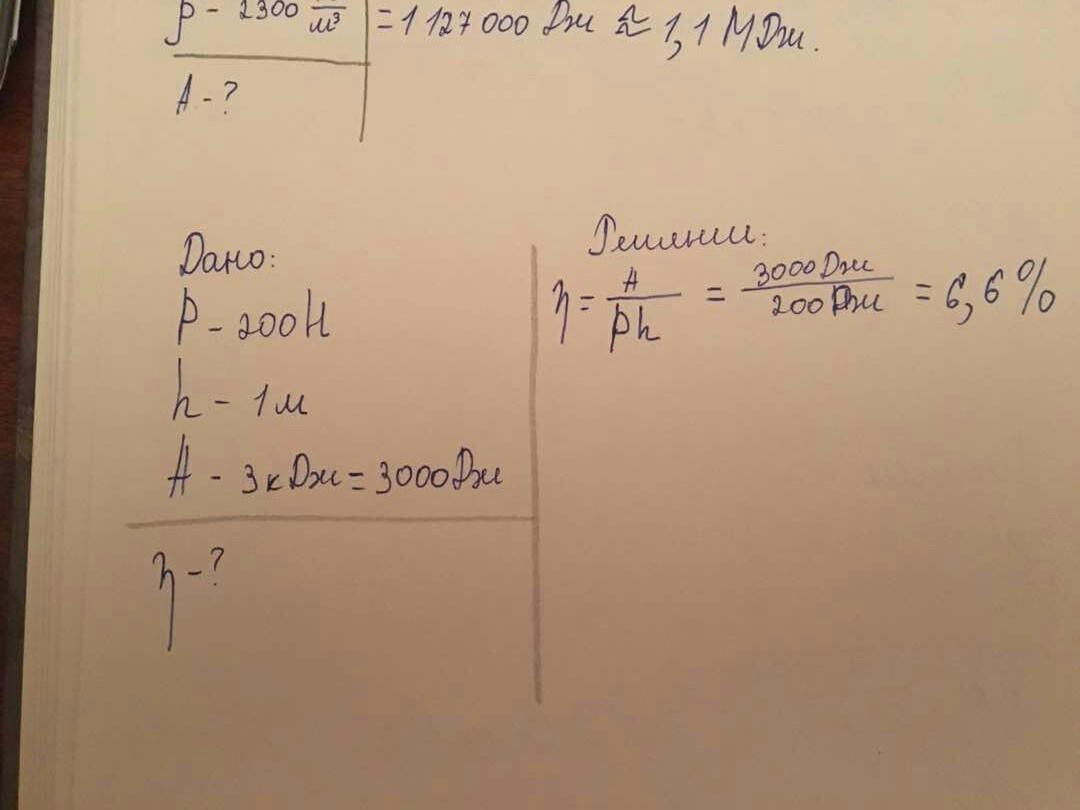 ρ - 2300 /м³ = 1 127 000 Дж ≈ 1,1 МДж.
А - ?
Дано:
P - 200Н
h - 1м
А - 3кДж = 3000Дж
η - ?
Решении:
η = А/Ph = 3000Дж/200Дж = 6,6%